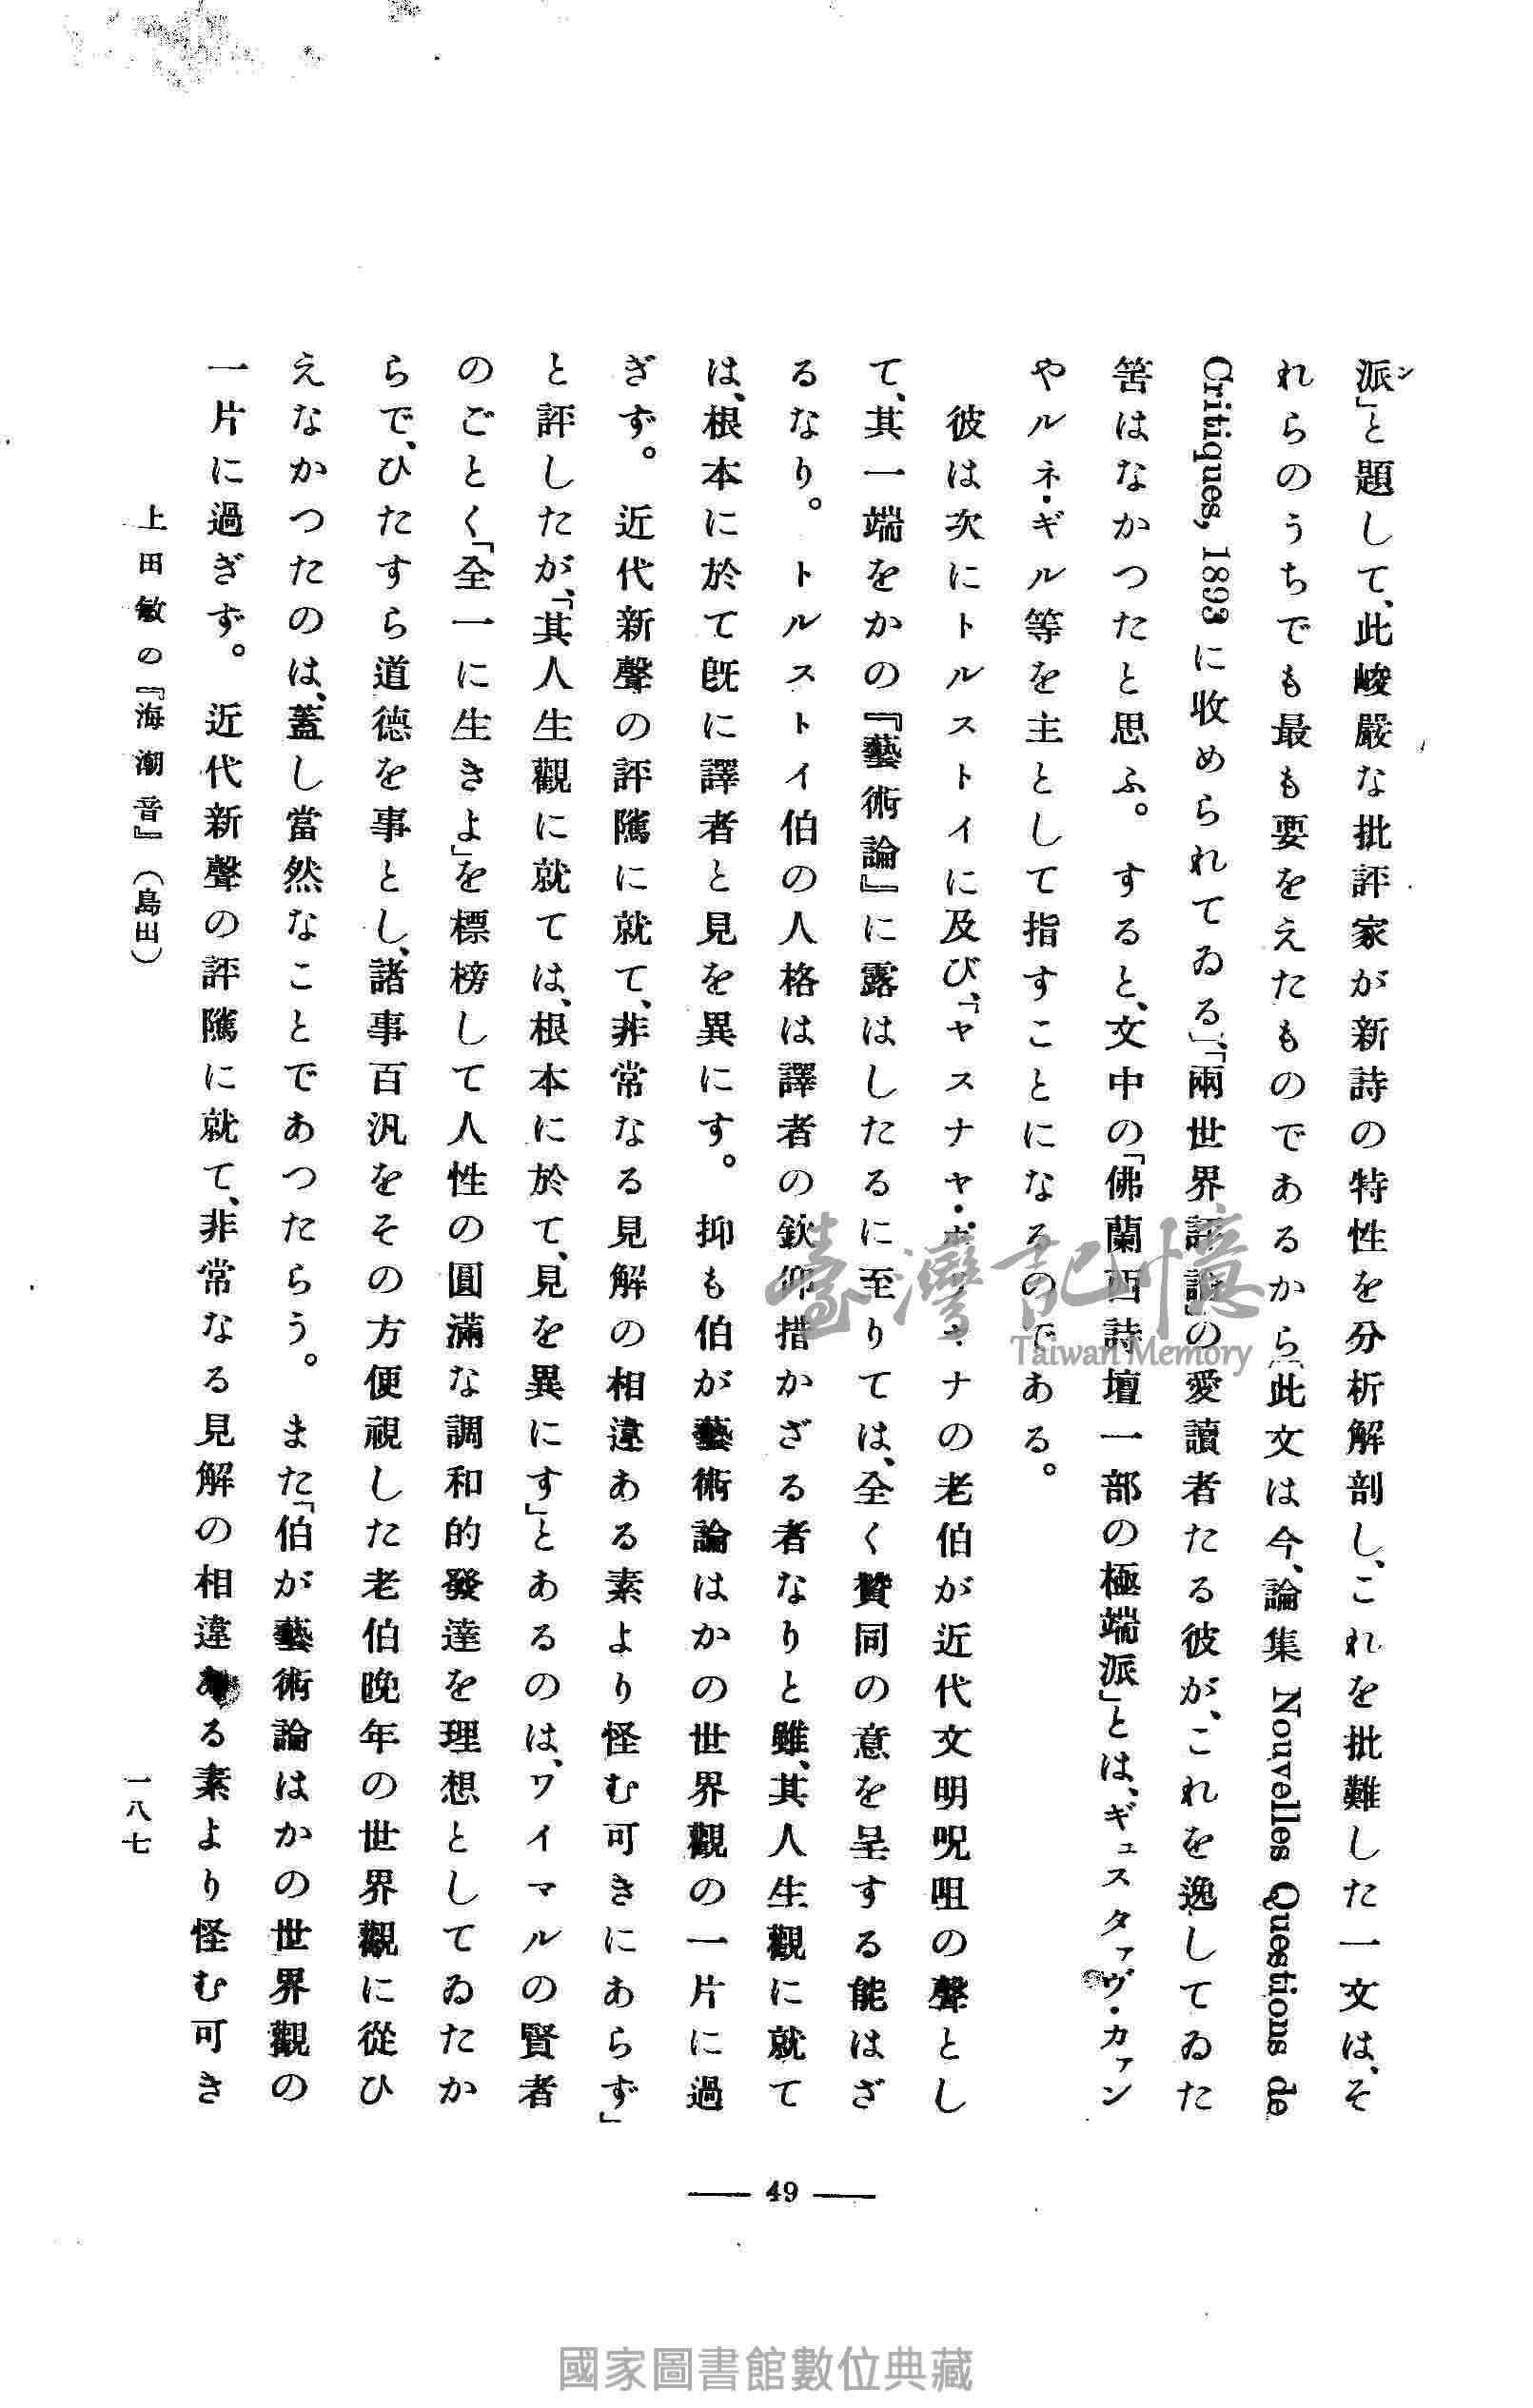 派」と題して、此峻嚴な批評家が新詩の特性を分析解剖し、これを批難した一文は、そ
れらのうちでも最も要をえたものであるから(此文は今、論集 Nouvelles Questions de
Critiques, 1893 に收められてゐる)、「兩世界評論」の愛讀者たる彼が、これを逸してゐた
筈はなかつたと思ふ。 すると、文中の「佛蘭西詩壇一部の極端派」とは、ギュスタァヴ・カァン
やルネ・ギル等を主として指すことになるのである。
彼は次にトルストイに及び、「ヤスナヤ・ポリヤナの老伯が近代文明呪咀の聲とし
て、其一端をかの『藝術論』に露はしたるに至りては、全く贊同の意を呈する能はざ
るなり。 トルストイ伯の人格は譯者の欽仰措かざる者なりと雖、其人生觀に就て
は、根本に於て旣に譯者と見を異にす。 抑も伯が藝術論はかの世界觀の一片に過
ぎず。 近代新聲の評隲に就て、非常なる見解の相違ある素より怪む可きにあらず」
と評したが、「其人生觀に就ては、根本に於て、見を異にす」とあるのは、ワイマルの賢者
のごとく「全一に生きよ」を標榜して人性の圓滿な調和的發達を理想としてゐたか
らで、ひたすら道德を事とし、諸事百汎をその方便視した老伯晚年の世界觀に從ひ
えなかつたのは、蓋し當然なことであつたらう。 また「伯が藝術論はかの世界觀の
一片に過ぎず。 近代新聲の評隲に就て、非常なる見解の相違ある素より怪む可き
上田敏の『海潮音』(島田)
一八七
49
臺灣記憶
Taiwan Memory
國家圖書館數位典藏